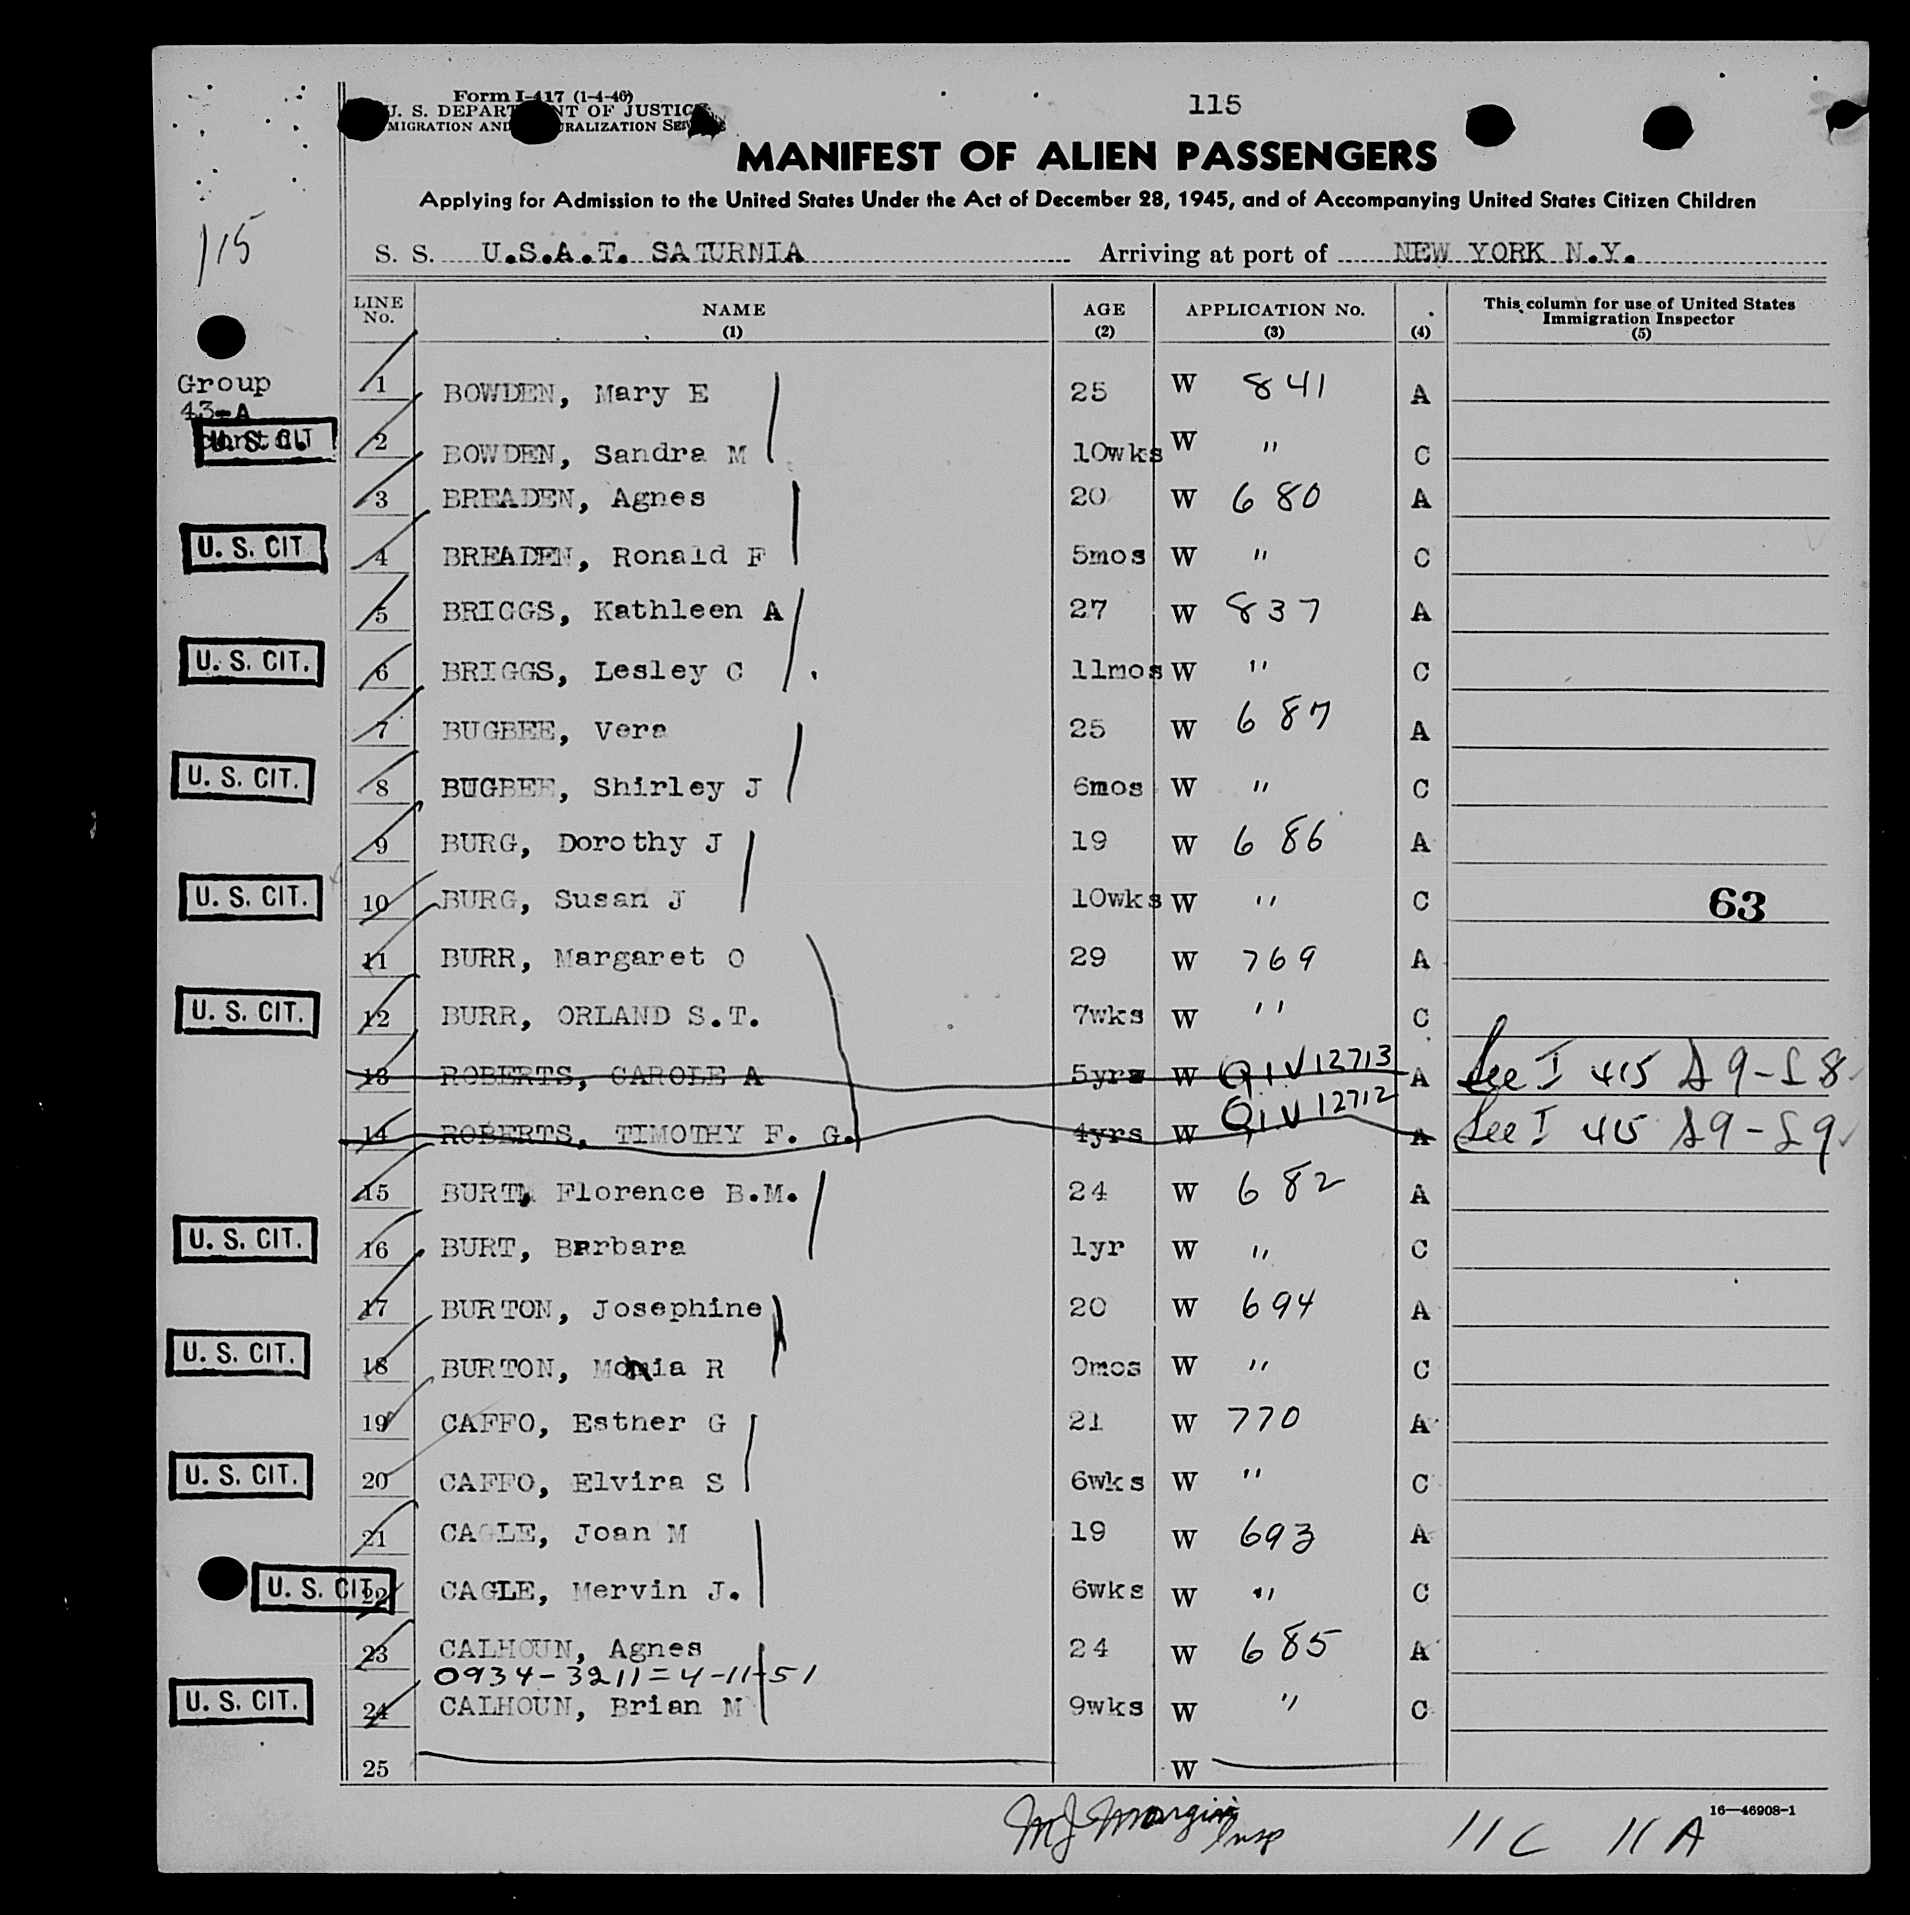 Form I-417 (1-4-46)
115
U. S. DEPART NT OF JUSTICE
MIGRATION AND URALIZATION
MANIFEST OF ALIEN PASSENGERS
Applying for Admission to the United States Under the Act of December 28, 1945, and of Accompanying United States Citizen Children
115
S. S. U.S.A.T. SATURNIA Arriving at port of NEW YORK N.Y.
LINE No. NAME (1) AGE (2) APPLICATION No. (3) (4) This column for use of United States Immigration Inspector (5)
Group
43-A
1 BOWDEN, Mary E 25 W 841 A
U. S. CIT 2 BOWDEN, Sandra M 10wks W " C
3 BREADEN, Agnes 20 W 680 A
U. S. CIT 4 BREADEN, Ronald F 5mos W " C
5 BRIGGS, Kathleen A 27 W 837 A
U. S. CIT. 6 BRIGGS, Lesley C 11mos W " C
7 BUGBEE, Vera 25 W 687 A
U. S. CIT. 8 BUGBEE, Shirley J 6mos W " C
9 BURG, Dorothy J 19 W 686 A
U. S. CIT. 10 BURG, Susan J 10wks W " C 63
11 BURR, Margaret O 29 W 769 A
U. S. CIT. 12 BURR, ORLAND S.T. 7wks W " C
13 ROBERTS, CAROLE A 5yrs W QIV 12713 A See I 415 S9-L8
14 ROBERTS, TIMOTHY F. G. 4yrs W QIV 12712 A See I 415 S9-L9
15 BURT, Florence B.M. 24 W 682 A
U. S. CIT. 16 BURT, Barbara 1yr W " C
17 BURTON, Josephine 20 W 694 A
U. S. CIT. 18 BURTON, Monia R 9mos W " C
19 CAFFO, Esther G 21 W 770 A
U. S. CIT. 20 CAFFO, Elvira S 6wks W " C
21 CAGLE, Joan M 19 W 693 A
U. S. CIT. 22 CAGLE, Mervin J. 6wks W " C
23 CALHOUN, Agnes 24 W 685 A
0934-3211=4-11-51
U. S. CIT. 24 CALHOUN, Brian M 9wks W " C
25 W
16—46908-1
Insp
11 C 11 A